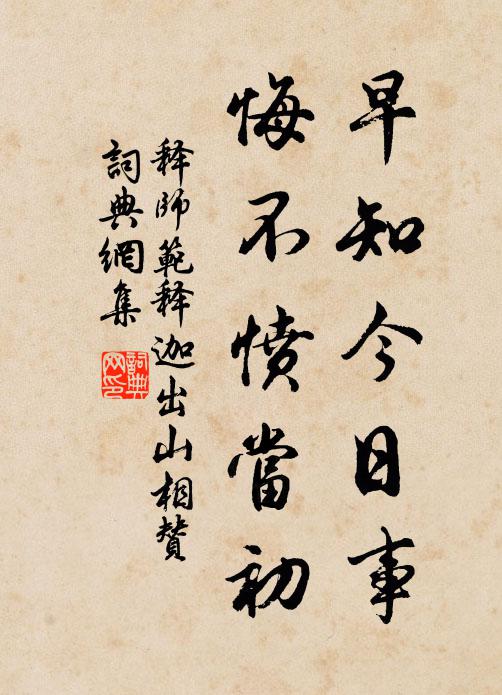 早知今日事
悔不憤當初
释師範释迦出山相賛
詞典網集
詞典网印